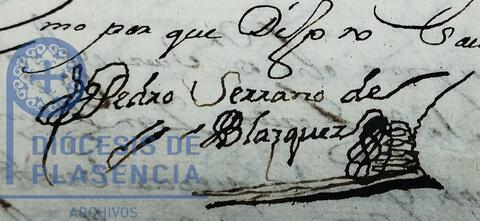 mo por que Dijo no
Pedro Serrano de
Blazquez
DIÓCESIS DE
PLASENCIA
ARCHIVOS